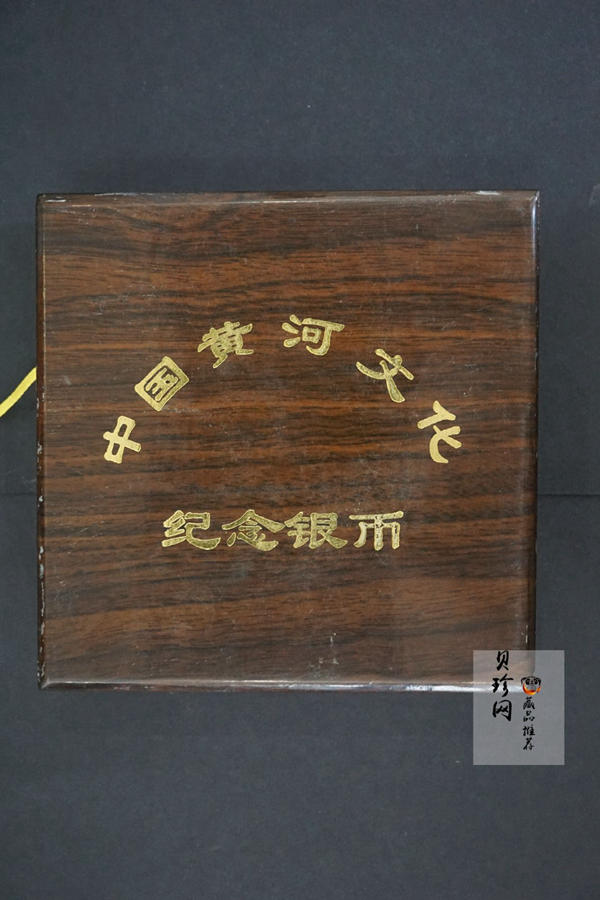 中国黄河文化
纪念银币
贝珍网
藏品推荐